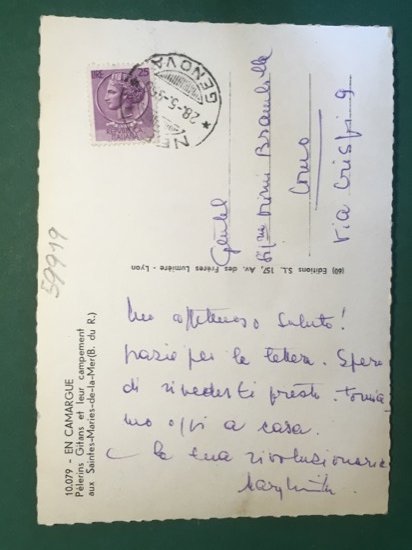 LIRE 25
GENOVA
28-5-5
Gentil
Sig.ne Mimì Brambilla
Como
Via Crispi 9
(60) Editions S.L. 157, Av. des Frères Lumière - Lyon
59919
10.079 - EN CAMARGUE
Pèlerins Gitans et leur campement
aux Saintes-Maries-de-la-Mer (B. du R.)
Un affettuoso saluto!
grazie per la lettera. Spero
di rivederti presto. Tornia
mo oggi a casa.
la tua rivoluzionaria